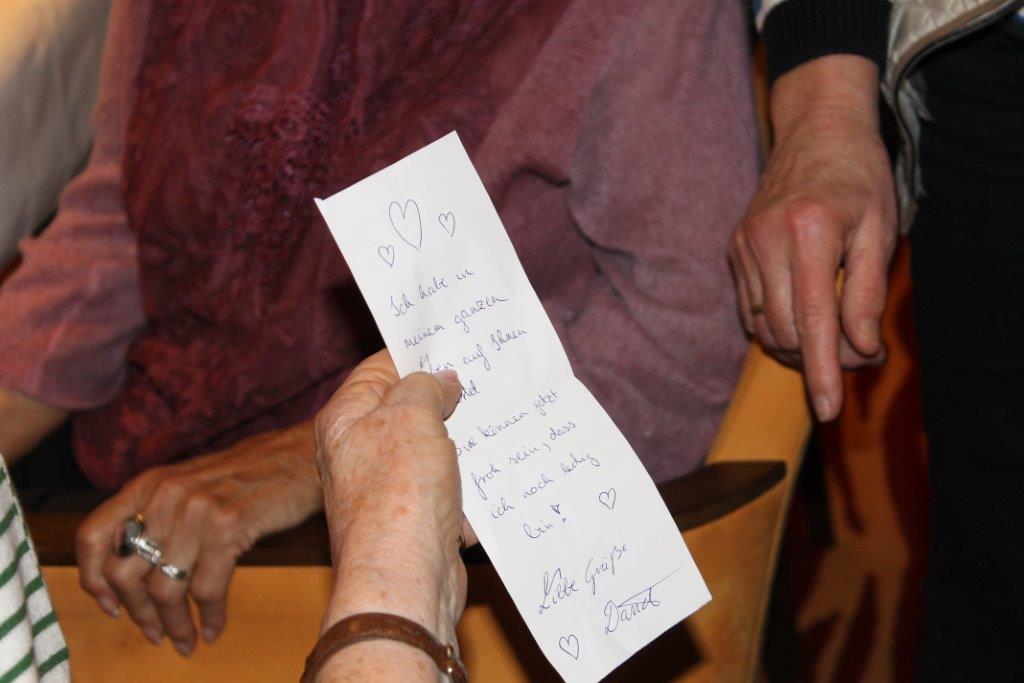 Ich habe in
meinem ganzen
auf Ihnen
Sie können jetzt
froh sein, dass
ich noch ledig
bin!
Liebe Grüße